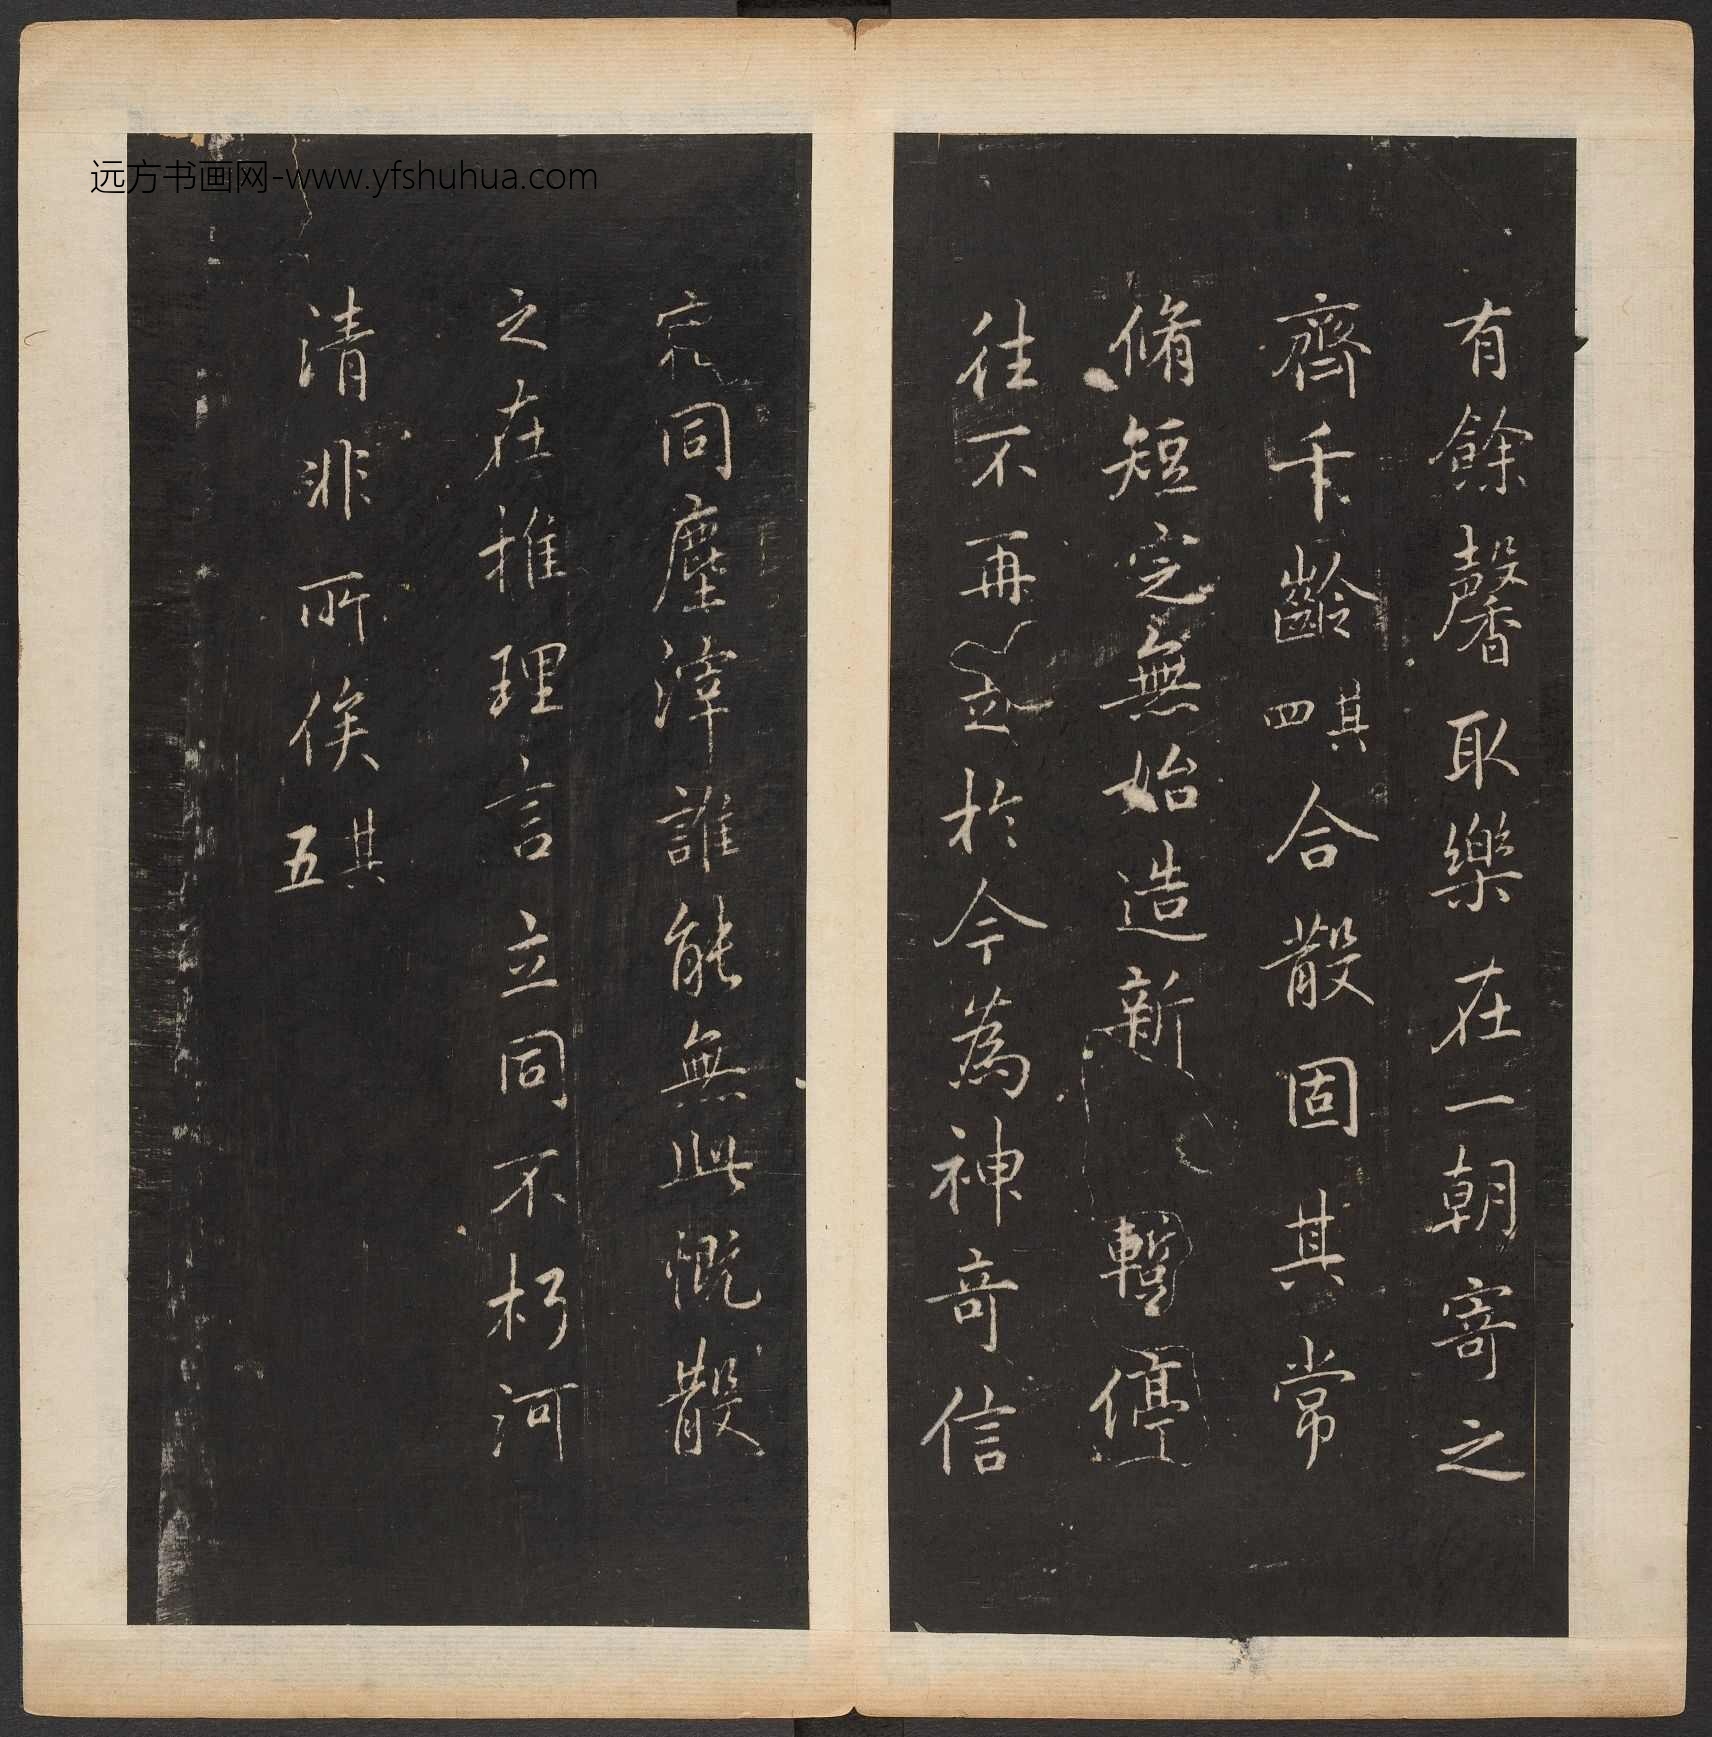 有餘馨取樂在一朝寄之
齊千齡其四合散固其常
脩短定無始造新暫停
往不再於今為神奇信
宿同塵滓誰能無此慨散
之在推理言立同不朽河
清非所俟其五
远方书画网-www.yfshuhua.com